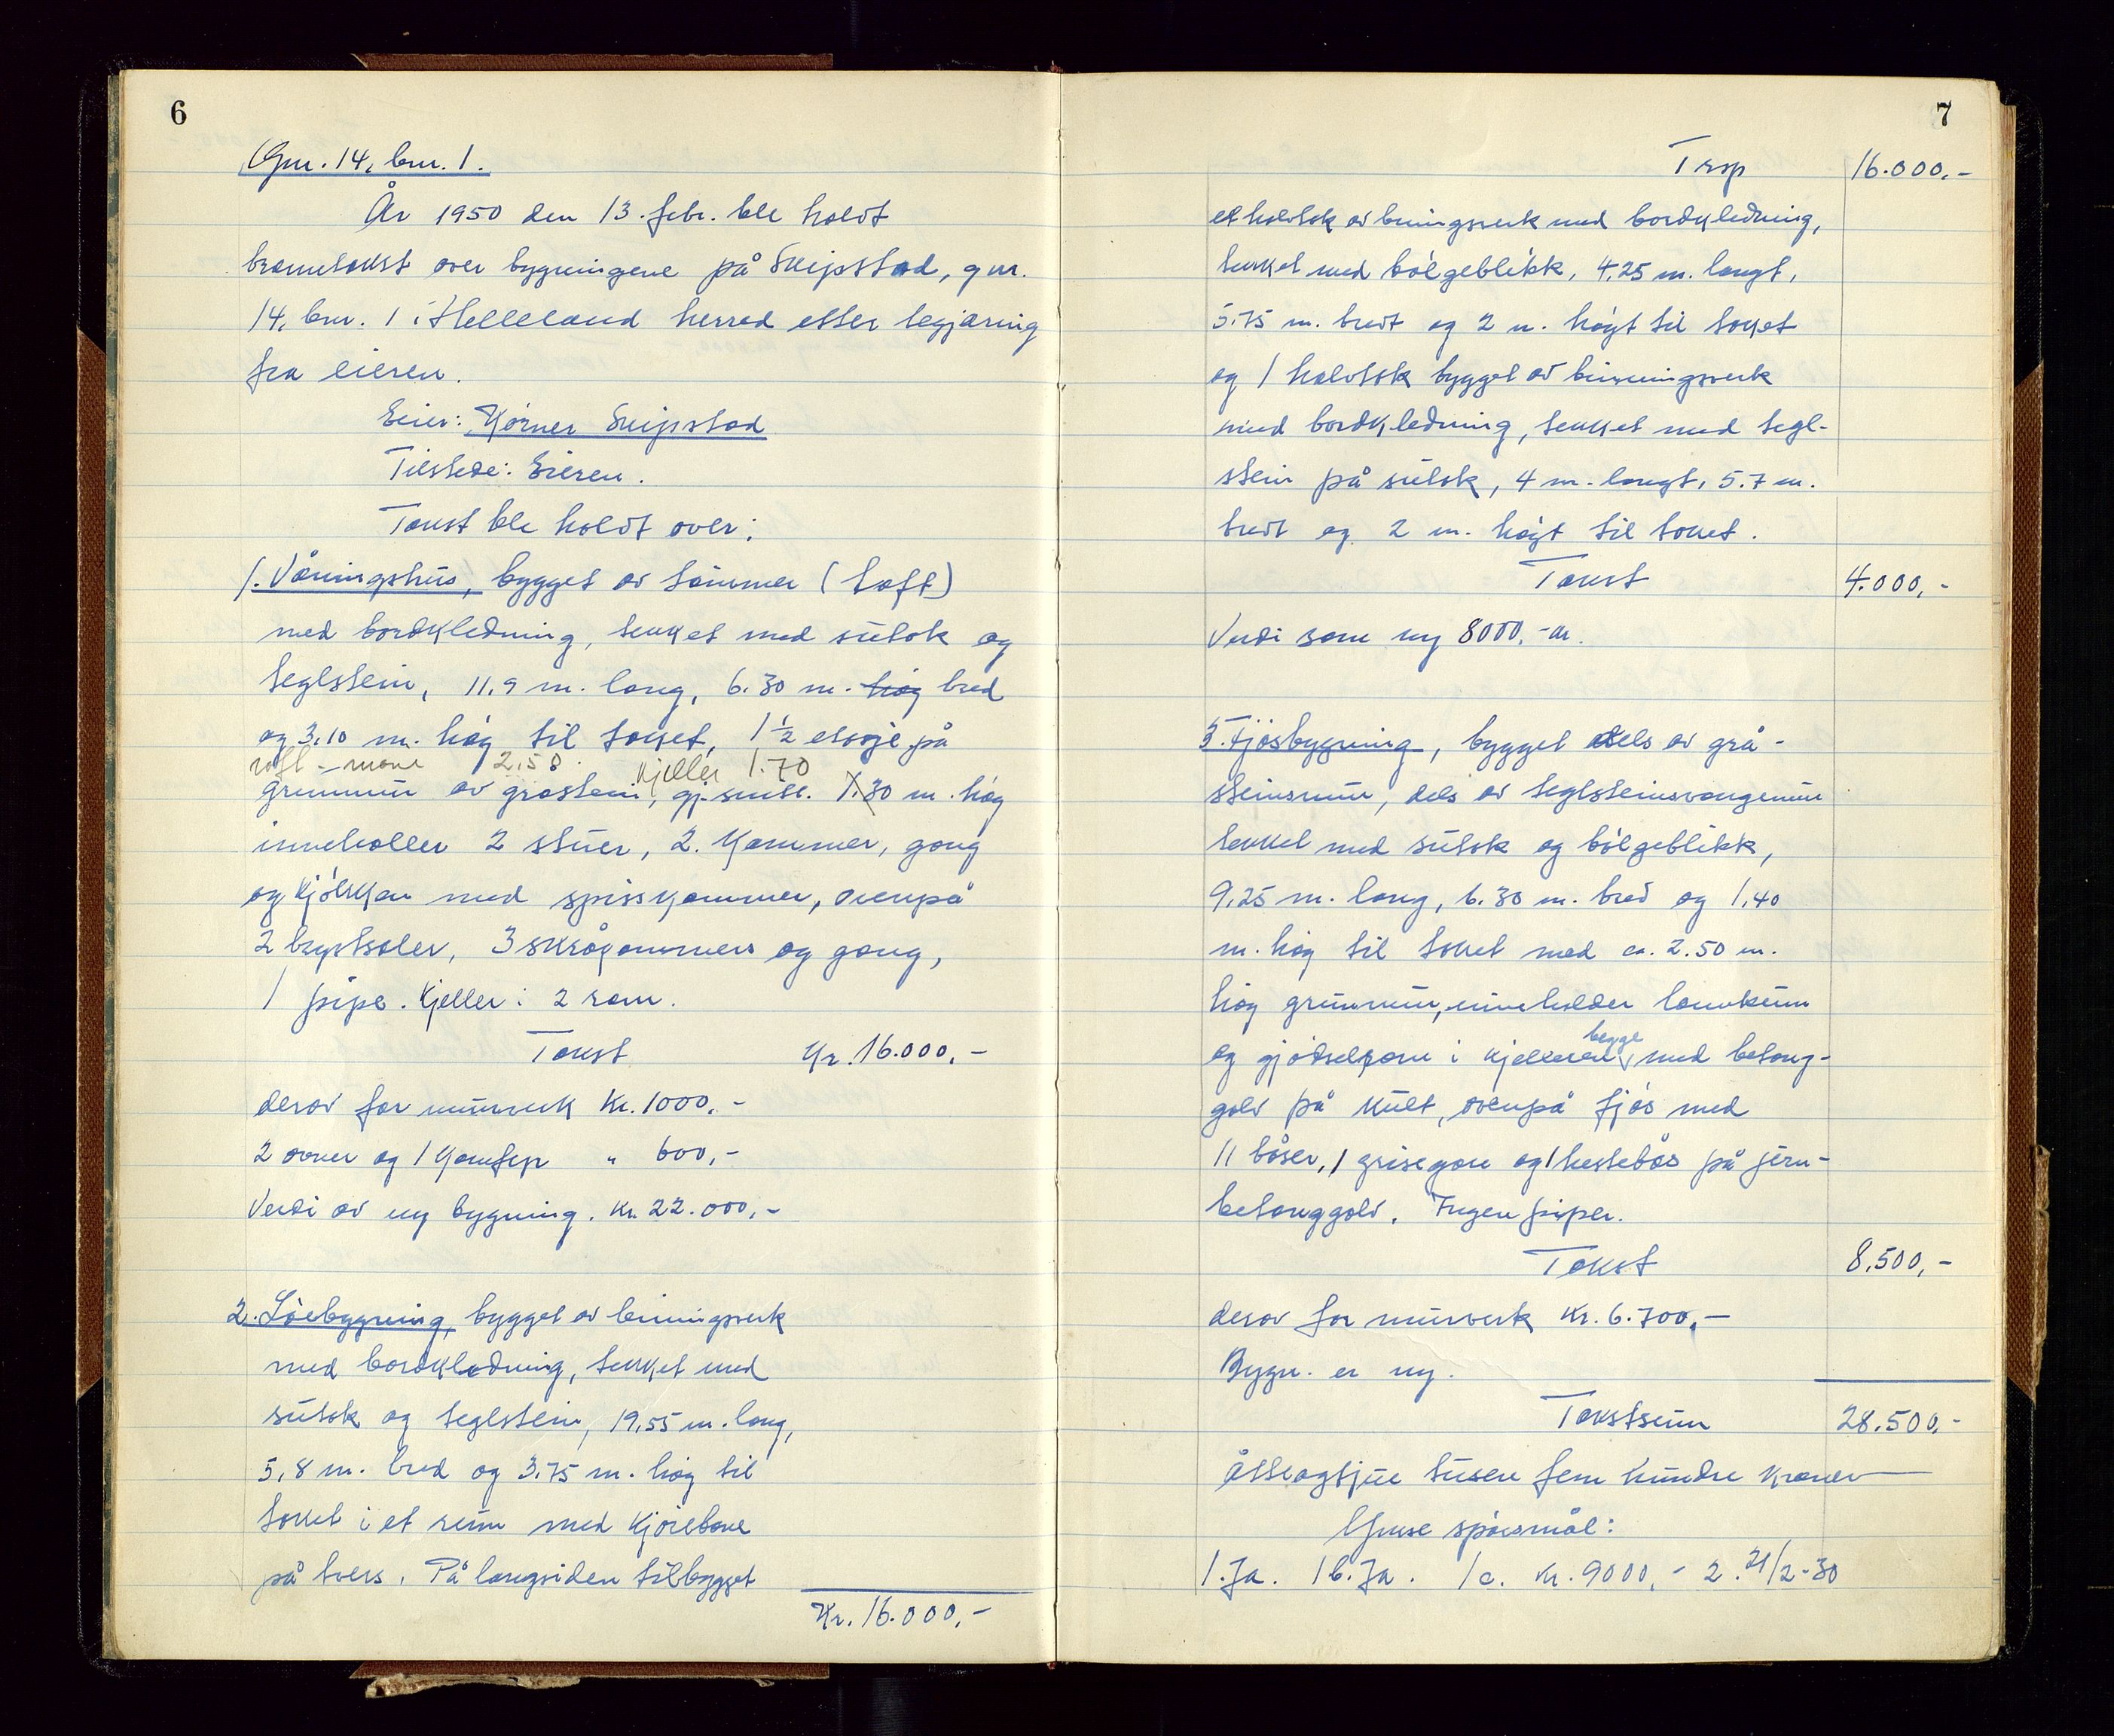 6
Gnr. 14, bnr. 1.
År 1950 den 13. febr. ble holdt
branntakst over bygningene på Skipstad, gnr.
14, bnr. 1 i Helleland herred etter begjæring
fra eieren.
Eier: Kørner Skipstad
Tilstede: Eieren.
Takst ble holdt over:
1. Våningshus, bygget av tømmer (loft)
med bordkledning, tekket med sutak og
teglstein, 11.9 m. lang, 6.30 m. høg bred
og 3.10 m. høg til taket, 1½ etasje på
loft - møne 2.50. kjeller 1.70
grunnmur av gråstein, gj.snitl. 1.30 m. høg
inneholler 2 stuer, 2 kammer, gang
og kjøkken med spisskammer, ovenpå
2 kvistsaler, 3 skråkammers og gang,
1 pipe. Kjeller: 2 rom.
Takst Kr. 16.000,-
derav for murverk Kr. 1000.-
2 ovner og 1 komfyr " 600,-
Verdi av ny bygning. Kr. 22.000,-
2. Løebygning, bygget av binningsverk
med bordkledning, tekket med
sutak og teglstein, 19,55 m. lang,
5,8 m. bred og 3.75 m. høg til
taket i et rum med kjørebane
på tvers. På langsiden tilbygget
Kr. 16.000,-
7
Trsp 16.000.-
et halvtak av binningsverk med bordkledning,
tekket med bølgeblikk, 4,25 m. langt,
5.75 m. bredt og 2 m. høgt til taket
og 1 halvtak bygget av binningsverk
med bordkledning, tekket med tegl-
stein på sutak, 4 m. langt, 5.7 m.
bredt og 2 m. høgt til taket.
Takst 4.000,-
Verdi som ny 8000,- kr.
3. Fjøsbygning, bygget dels av grå-
steinsmur, dels av teglsteinsvangemur
tekket med sutak og bølgeblikk,
9,25 m. lang, 6.30 m. bred og 1,40
m. høg til taket med ca. 2.50 m.
høg grunnmur, inneholder landkum
og gjødselrom i kjelleren begge med betong-
golv på kult, ovenpå fjøs med
11 båser, 1 grisegare og 1 hestebås på jern-
betonggolv. Ingen piper.
Takst 8.500,-
derav for murverk Kr. 6.700,-
Bygn. er ny.
Takstsum 28.500,-
åtteogtjue tusen fem hundre kroner
Ymse spørsmål:
1. Ja. 1b. Ja. 1c. Kr. 9000,- 2. 21/2-30